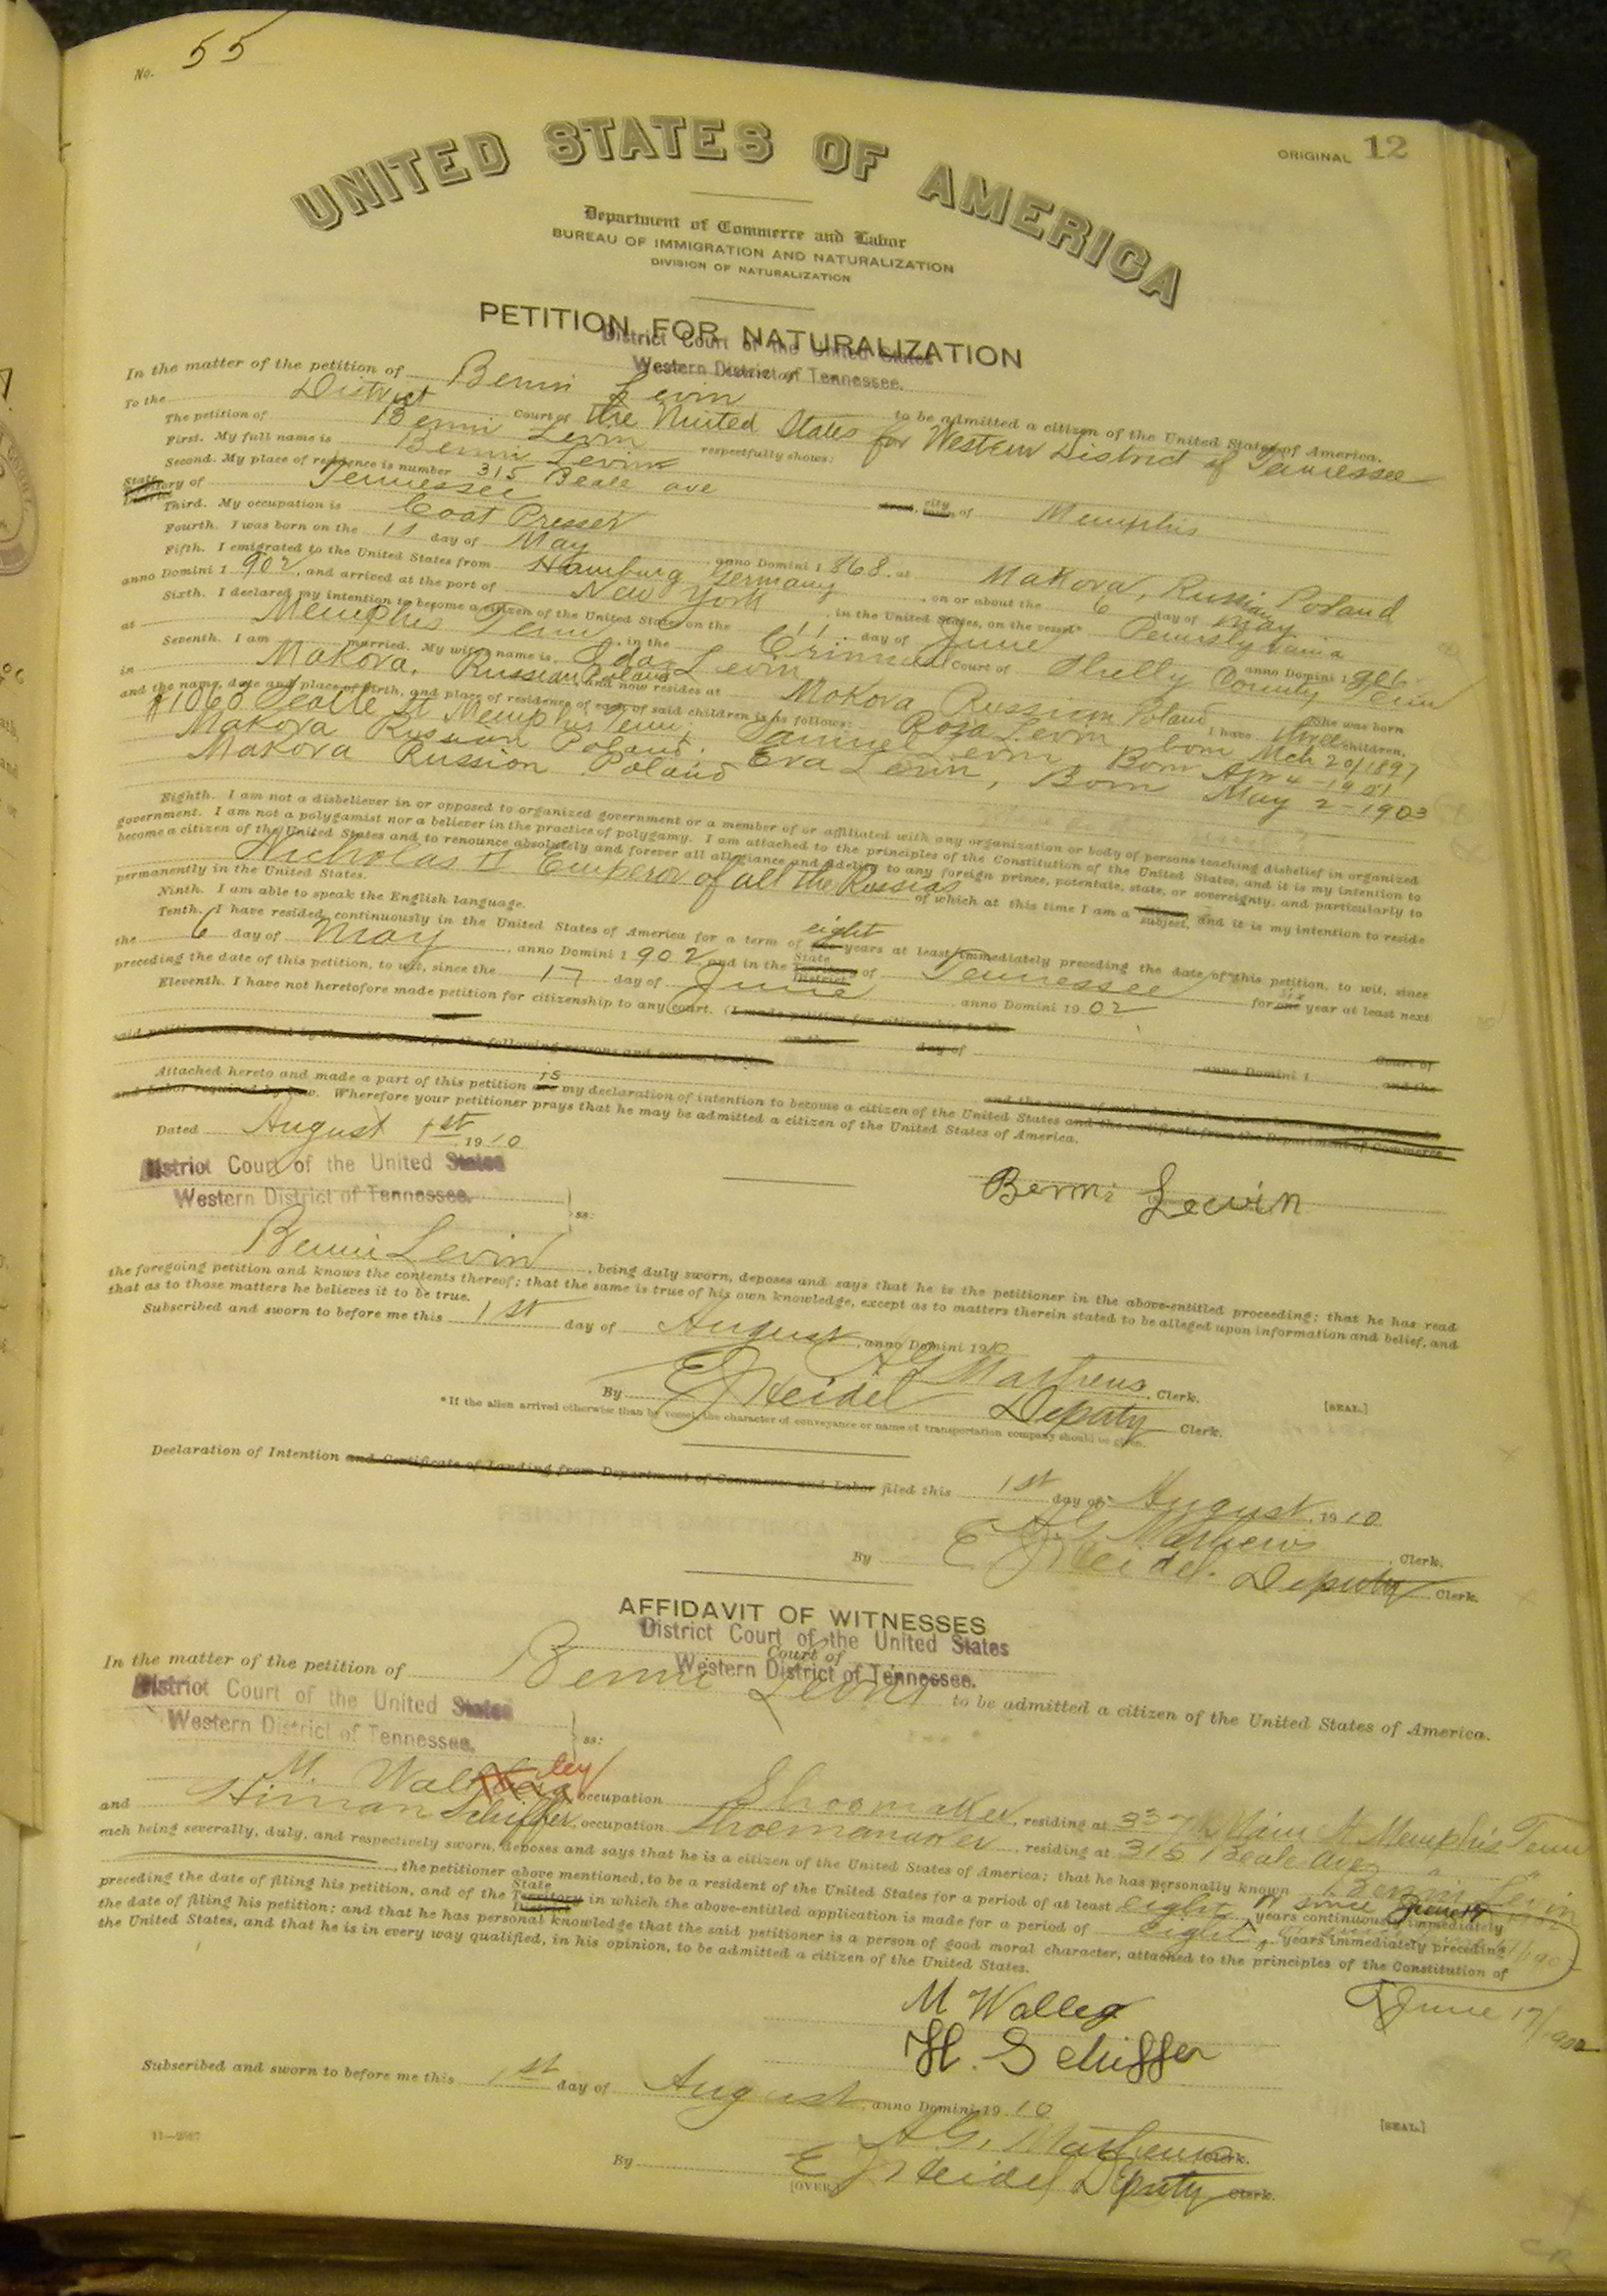 No. 55
ORIGINAL 12
UNITED STATES OF AMERICA
Department of Commerce and Labor
BUREAU OF IMMIGRATION AND NATURALIZATION
DIVISION OF NATURALIZATION
PETITION FOR NATURALIZATION
District Court of the United States
Western District of Tennessee.
In the matter of the petition of Benni Levin to be admitted a citizen of the United States of America.
To the District Court of the United States for Western District of Tennessee
The petition of Benni Levin respectfully shows:
First. My full name is Benni Levin
Second. My place of residence is number 315 Beale ave city of Memphis
State Territory District of Tennessee
Third. My occupation is Coat Presser
Fourth. I was born on the 15 day of May, anno Domini 1868, at Makova, Russian Poland
Fifth. I emigrated to the United States from Hamburg Germany, on or about the 6 day of May
anno Domini 1902, and arrived at the port of New York, in the United States, on the vessel* Pennsylvania
Sixth. I declared my intention to become a citizen of the United States on the 11 day of June anno Domini 1906
at Memphis Tenn, in the Criminal Court of Shelby County Tenn
Seventh. I am married. My wife's name is Ida Levin She was born
in Makova, Russian Poland and now resides at Makova Russian Poland I have three children,
and the name, date and place of birth, and place of residence of each of said children is as follows: Roza Levin, born Mch 20/1897
Makova Russian Poland. Samuel Levin Born Apr 4-1901
Makova Russian Poland Eva Levin, Born May 2-1903
Eighth. I am not a disbeliever in or opposed to organized government or a member of or affiliated with any organization or body of persons teaching disbelief in organized
government. I am not a polygamist nor a believer in the practice of polygamy. I am attached to the principles of the Constitution of the United States, and it is my intention to
become a citizen of the United States and to renounce absolutely and forever all allegiance and fidelity to any foreign prince, potentate, state, or sovereignty, and particularly to
Nicholas II Emperor of all the Russias of which at this time I am a subject, and it is my intention to reside
permanently in the United States.
Ninth. I am able to speak the English language.
Tenth. I have resided continuously in the United States of America for a term of eight years at least immediately preceding the date of this petition, to wit, since
the 6 day of May, anno Domini 1902, and in the State Territory District of Tennessee for one year at least next
preceding the date of this petition, to wit, since the 17 day of June anno Domini 1902
Eleventh. I have not heretofore made petition for citizenship to any court. (I made petition for citizenship to the
Court of
on the day of anno Domini 1 and the
said petition was denied by the said Court for the following reasons and causes, to wit
Attached hereto and made a part of this petition is my declaration of intention to become a citizen of the United States and the certificate from the Department of Commerce
and Labor required by law. Wherefore your petitioner prays that he may be admitted a citizen of the United States of America.
Dated August 1st 1910
Benni Lewin
District Court of the United States
Western District of Tennessee. ss:
Benni Levin, being duly sworn, deposes and says that he is the petitioner in the above-entitled proceeding; that he has read
the foregoing petition and knows the contents thereof; that the same is true of his own knowledge, except as to matters therein stated to be alleged upon information and belief, and
that as to those matters he believes it to be true.
Subscribed and sworn to before me this 1st day of August, anno Domini 1910
A G Mathews, Clerk.
By E J Heidel Deputy Clerk.
[SEAL.]
*If the alien arrived otherwise than by vessel, the character of conveyance or name of transportation company should be given.
Declaration of Intention and Certificate of Landing from Department of Commerce and Labor filed this 1st day of August, 1910
A G Mathews, Clerk.
By E J Heidel. Deputy Clerk.
AFFIDAVIT OF WITNESSES
District Court of the United States
Court of
Western District of Tennessee.
In the matter of the petition of Benni Levin to be admitted a citizen of the United States of America.
District Court of the United States
Western District of Tennessee. ss:
M. Walley occupation Shoemaker, residing at Main St Memphis Tenn
and Himan Schiffer, occupation residing at 315 Beale Ave
each being severally, duly, and respectively sworn, deposes and says that he is a citizen of the United States of America; that he has personally known Benni Levin
, the petitioner above mentioned, to be a resident of the United States for a period of at least eight years continuously immediately
preceding the date of filing his petition, and of the State Territory District in which the above-entitled application is made for a period of eight years immediately preceding
the date of filing his petition; and that he has personal knowledge that the said petitioner is a person of good moral character, attached to the principles of the Constitution of
the United States, and that he is in every way qualified, in his opinion, to be admitted a citizen of the United States.
June 17/1902
M Walley
H. Schiffer
Subscribed and sworn to before me this 1st day of August, anno Domini 1910
A G. Mathews Clerk.
[SEAL.]
By E J Heidel Deputy Clerk.
[OVER]